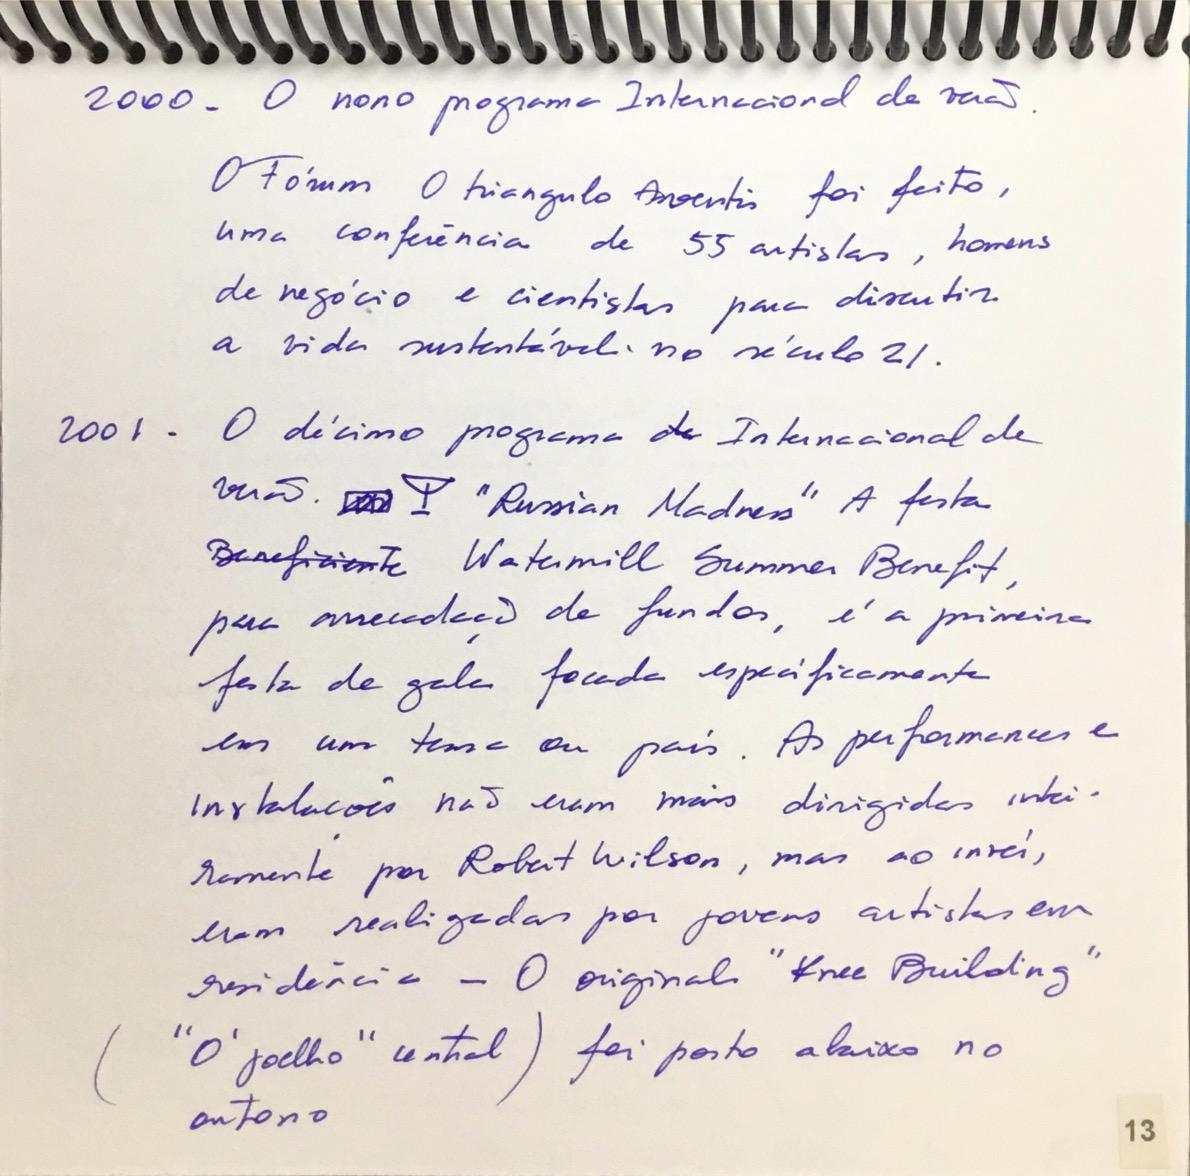 2000 - O nono programa Internacional de verão.
O Fórum O triangulo Aventis foi feito,
uma conferência de 55 artistas, homens
de negócio e cientistas para discutir
a vida sustentável no século 21.
2001 - O décimo programa de Internacional de
verão. "Russian Madness" A festa
Beneficiente Watermill Summer Benefit,
para arrecadação de fundos, é a primeira
festa de gala focada especificamente
em um tema ou país. As performances e
instalacões não eram mais dirigidas intei-
ramente por Robert Wilson, mas ao invéi,
eram realizadas por jovens artistas em
residência - O original "Knee Building"
("O joelho" central) foi posto abaixo no
outono
13